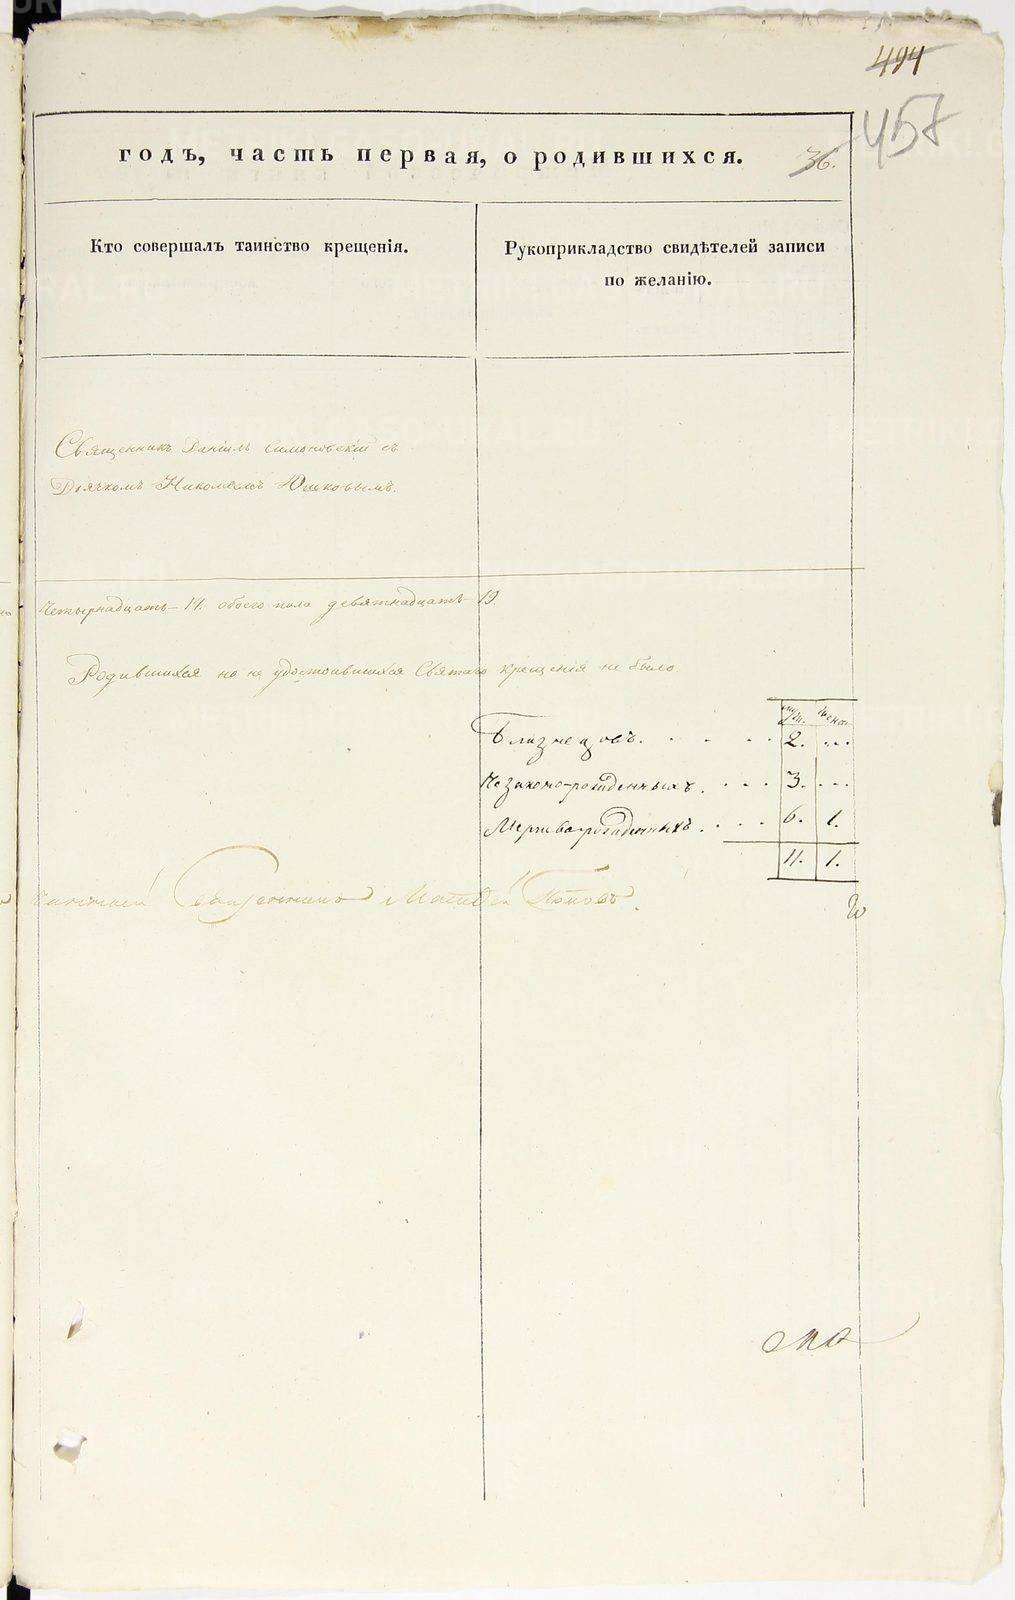 494
457
годъ, часть первая, о родившихся.
36.
Кто совершалъ таинство крещенія.
Рукоприкладство свидѣтелей записи
по желанію.
Священникъ Даніилъ Симоновскій съ
Дьячкомъ Николаемъ Юшковымъ.
Четырнадцать 14. обоего пола девятнадцать 19.
Родившихся но не удостоившихся Святаго крещенія не было.
муж. женс.
Близнецовъ. . . . . 2. ...
Незаконо-рожденныхъ . . . . 3. ...
Мертворожденныхъ . . . . 6. 1.
11. 1.
Священникъ Матвей Поповъ.
METRIKI.GASO-URAL.RU